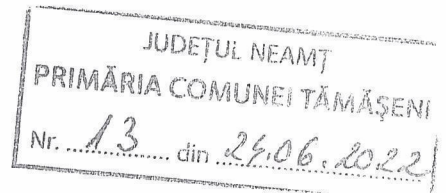 JUDEȚUL NEAMȚ
PRIMĂRIA COMUNEI TĂMĂȘENI
Nr. 13 din 24.06.2022